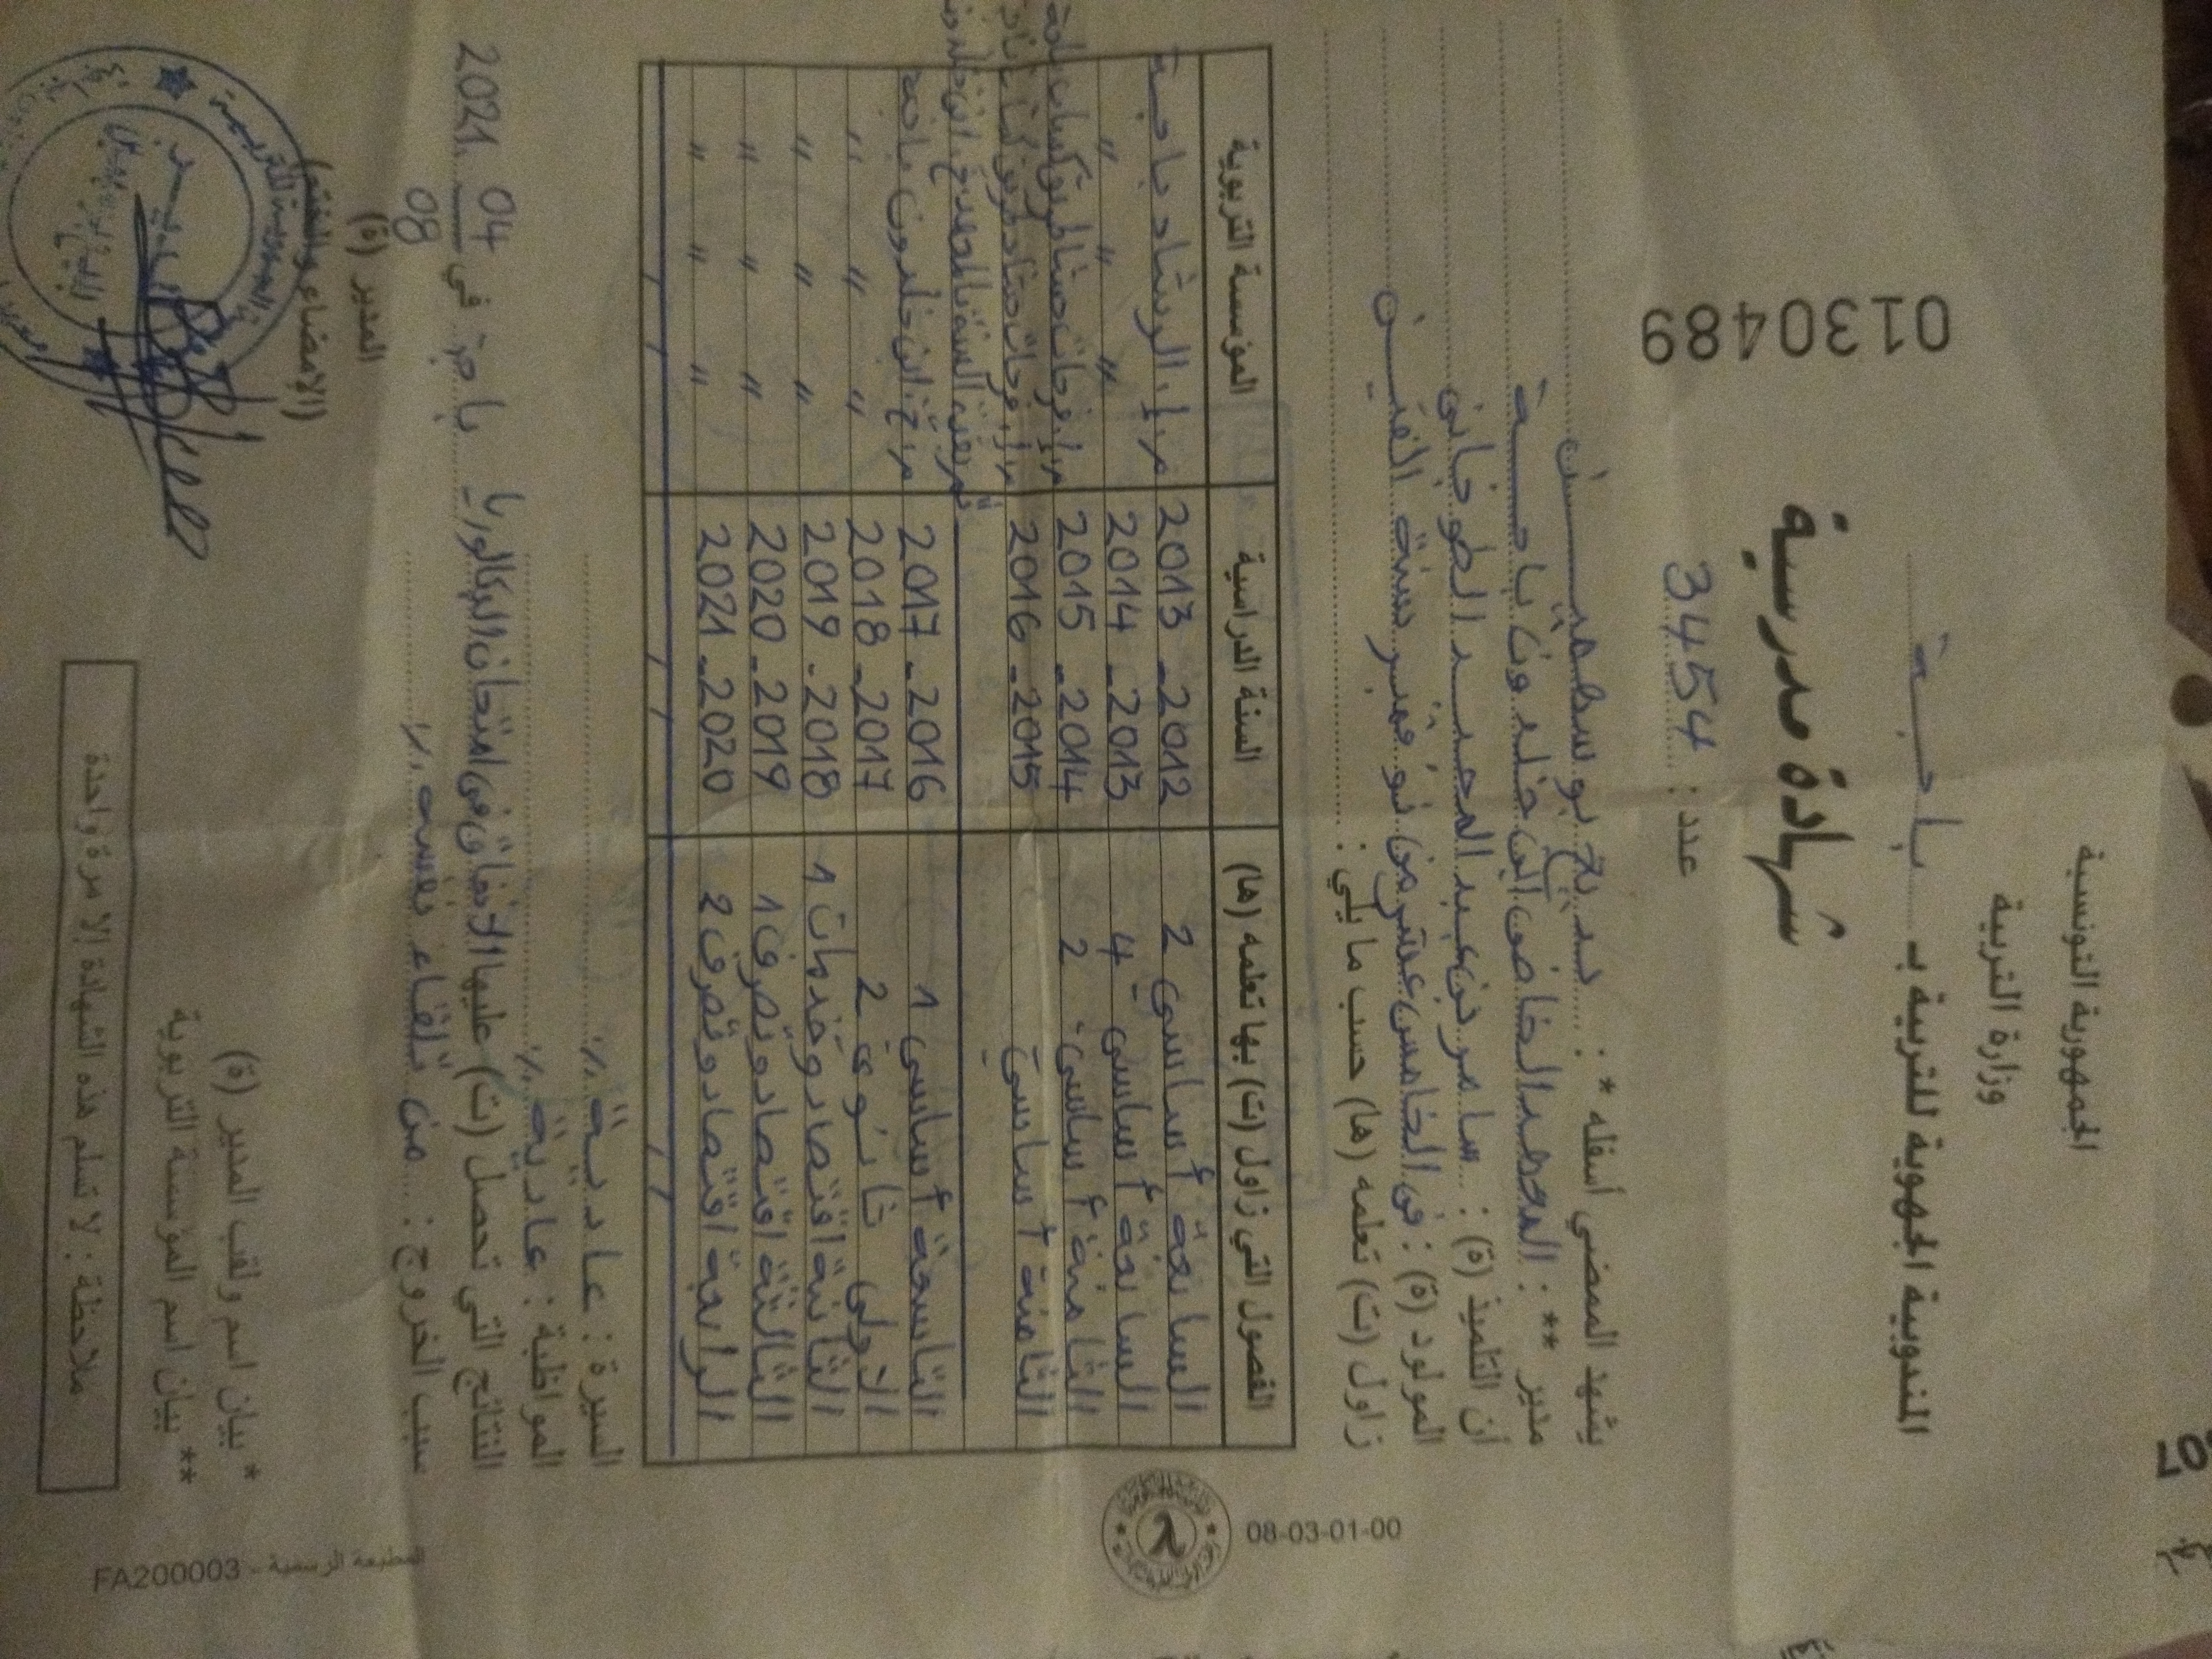 الجمهورية التونسية
وزارة التربية
المندوبية الجهوية للتربية بـ باجـــة
0130489
شهادة مدرسية
عدد : 3454
يشهد الممضي أسفله * : بديع بوسطمي
مدير ** : المعهد الخاص ابن خلدون باجــــة
أن التلميذ (ة) : سامر بن عبد المجيد الطوجاني
المولود (ة) : في الخامس عشر من نوفمبر سنة ألفيــن
زاول (ت) تعلمه (ها) حسب ما يلي :
الفصول التي زاول (ت) بها تعلمه (ها) السنة الدراسية المؤسسة التربوية
السابعة أساسي 2 2012 - 2013 م.إ. الرشاد باجة
السابعة أساسي 4 2013 - 2014 " " "
الثامنة أساسي 2 2014 - 2015
الثامنة أساسي 2015 - 2016
التاسعة أساسي 1 2016 - 2017 م.خ. ابن خلدون باجة
الأولى ثانوي 2 2017 - 2018 " " "
الثانية اقتصاد وخدمات 1 2018 - 2019 " " "
الثالثة اقتصاد وتصرف 1 2019 - 2020 " " "
الرابعة اقتصاد وتصرف 2 2020 - 2021 " " "
السيرة : عاديـــة ./.
المواظبة : عاديـة ./.
النتائج التي تحصل (ت) عليها الإخفاق في امتحان البكالوريا
باجة في 04 08 2021
سبب الخروج : من تلقاء نفسه ./.
المدير (ة)
(الإمضاء والختم)
* بيان اسم ولقب المدير (ة)
** بيان اسم المؤسسة التربوية
ملاحظة : لا تسلم هذه الشهادة إلا مرة واحدة
08-03-01-00
المطبعة الرسمية - FA200003